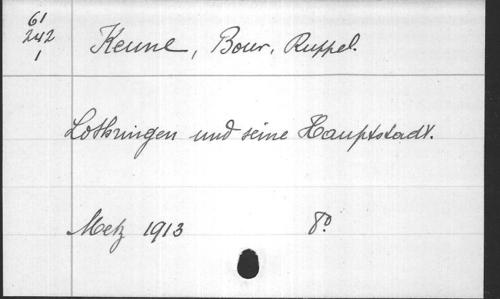 61
242
1
Keune, Bour, Ruppel.
Lothringen und seine Hauptstadt.
Metz 1913 8°